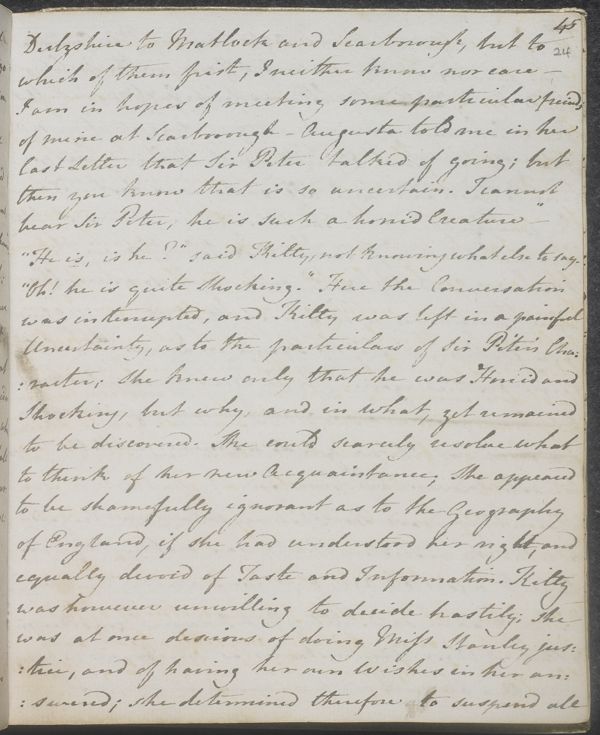 45
24
Derbyshire to Matlock and Scarborough, but to
which of them first, I neither know nor care –
I am in hopes of meeting some particular freinds
of mine at Scarborough – Augusta told me in her
last Letter that Sir Peter talked of going; but
then you know that is so uncertain. I cannot
bear Sir Peter, he is such a horrid Creature" –
"He is, is he?" said Kitty, not knowing what else to say.
"Oh! he is quite Shocking." Here the Conversation
was interrupted, and Kitty was left in a painful
Uncertainty, as to the particulars of Sir Peter's Cha:
:racter; She knew only that he was Horrid and
Shocking, but why, and in what, yet remained
to be discovered. She could scarcely resolve what
to think of her new Acquaintance; She appeared
to be shamefully ignorant as to the Geography
of England, if she had understood her right, and
equally devoid of Taste and Information. Kitty
was however unwilling to decide hastily; she
was at once desirous of doing Miss Stanley jus:
:tice, and of having her own Wishes in her an:
:swered; she determined therefore to suspend all